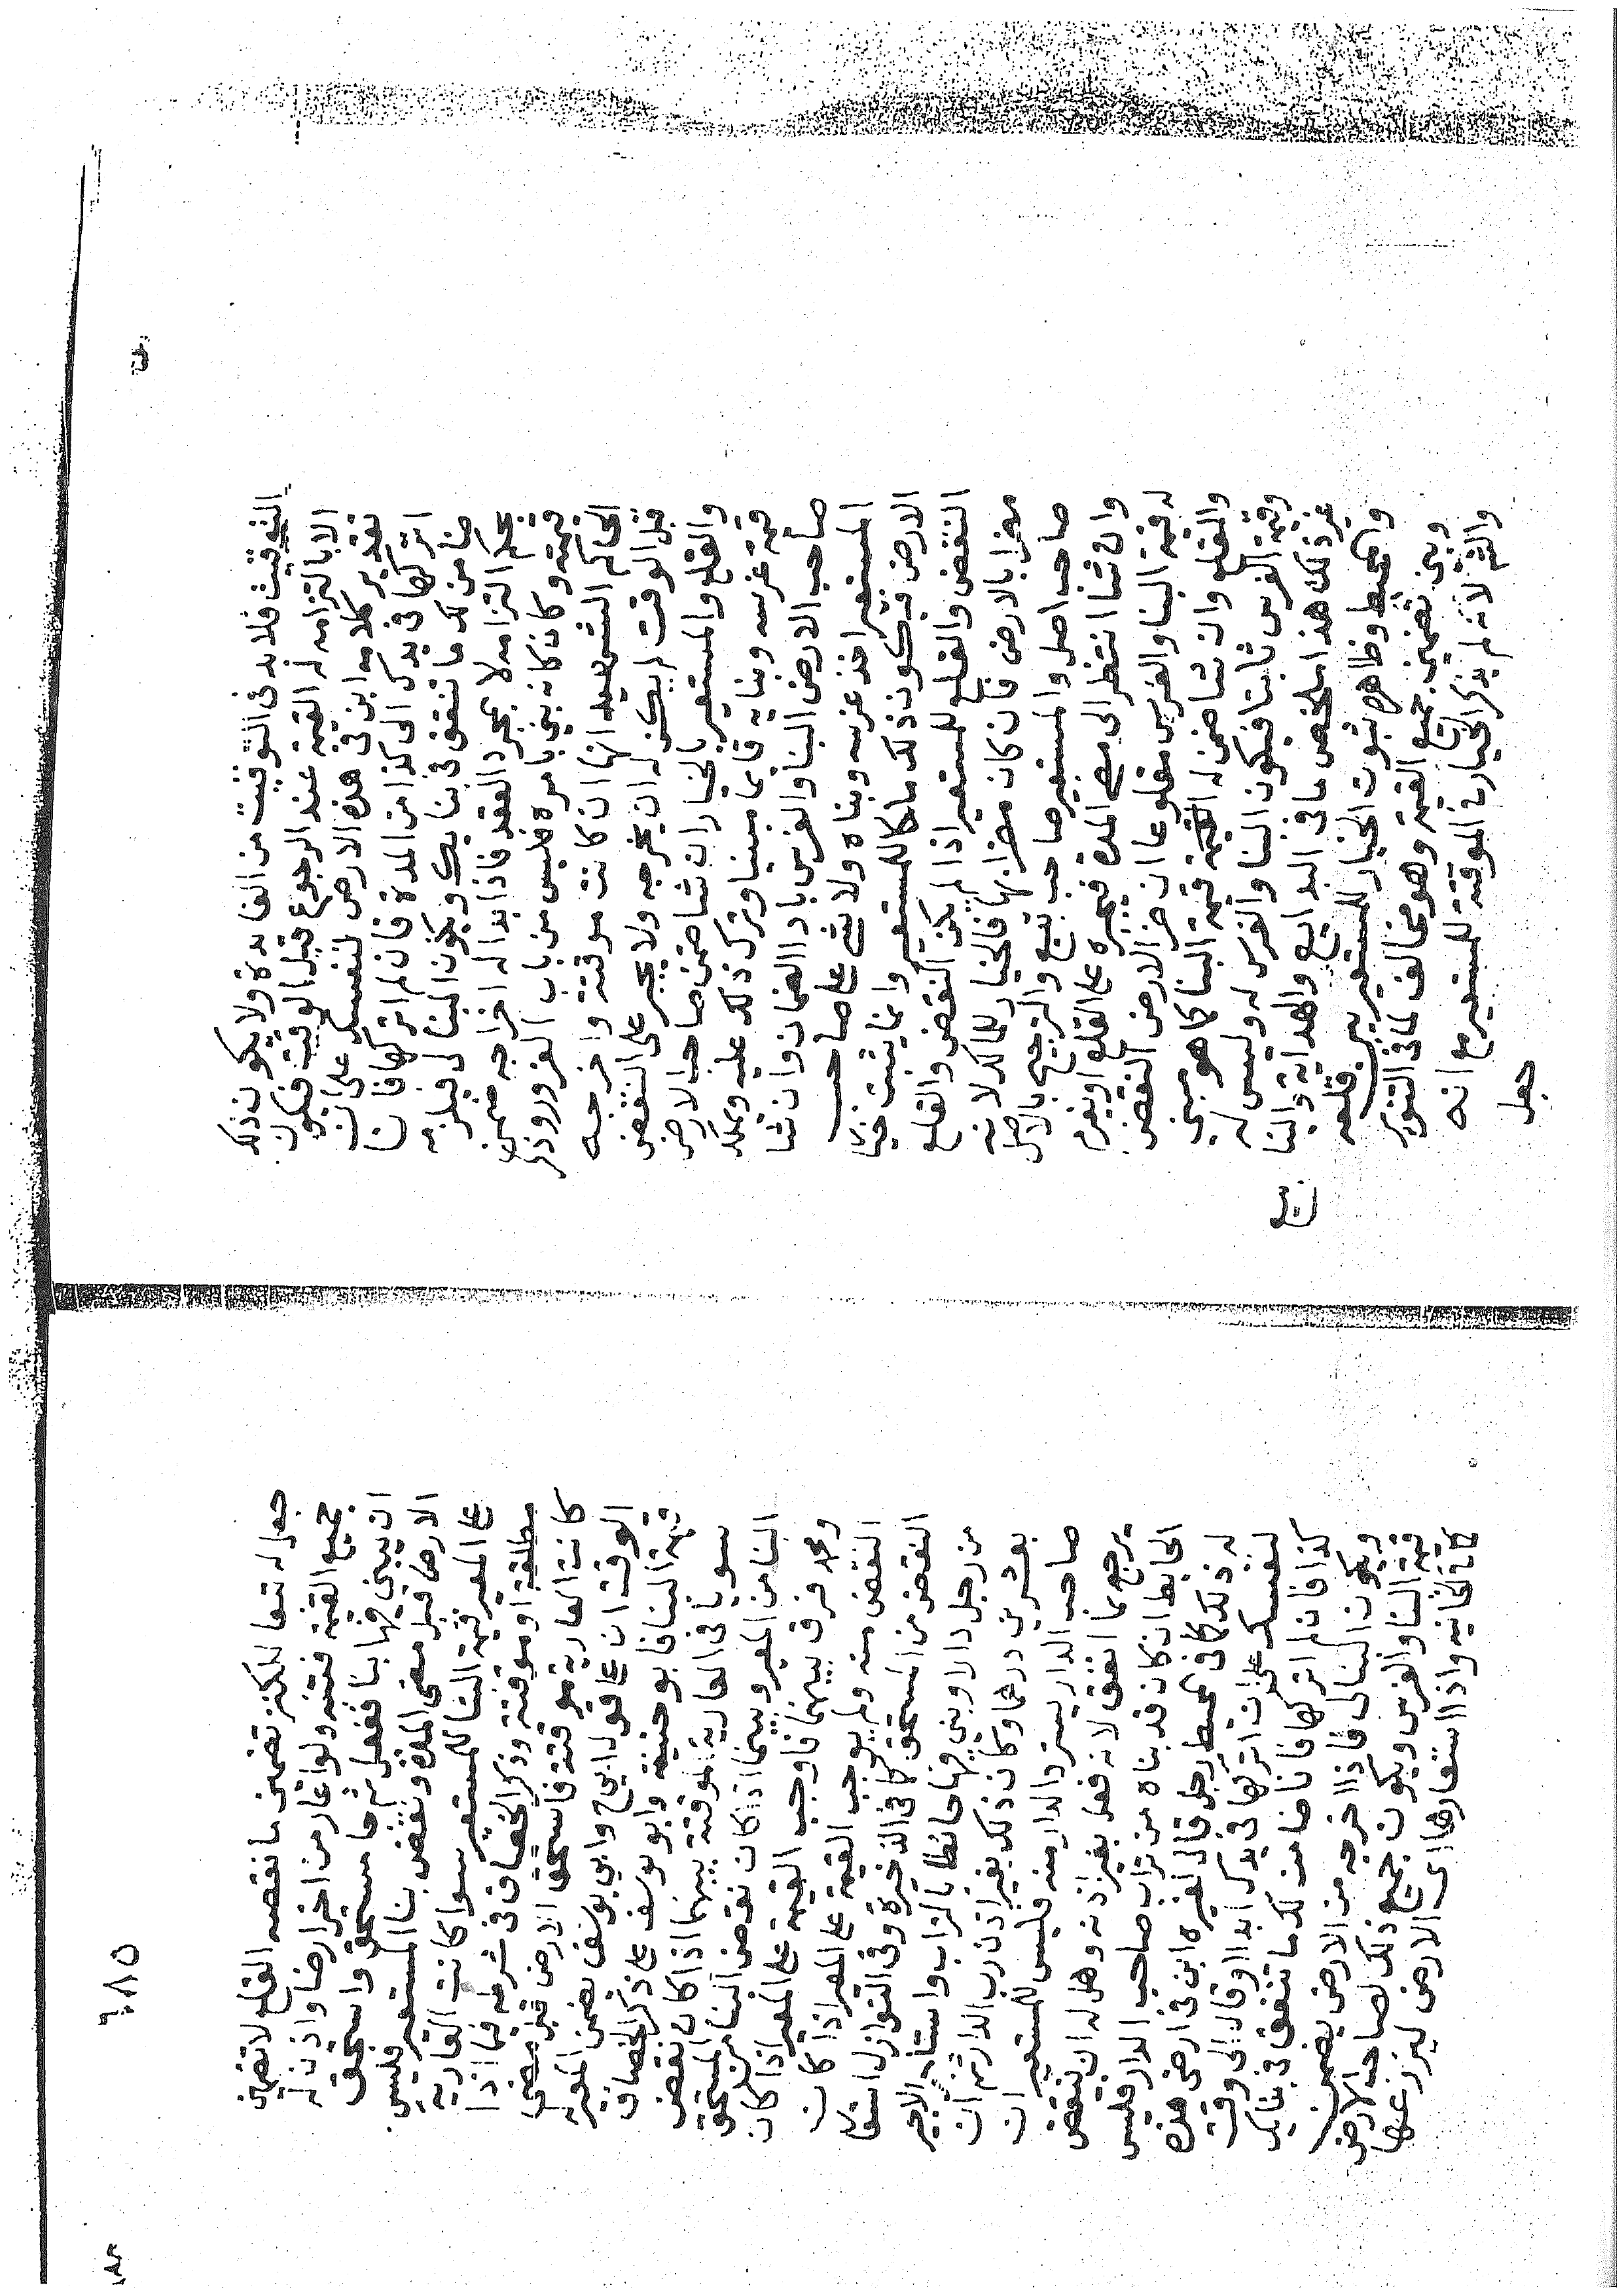 التوقيت فلا بد في التوقيت من الفايدة ولا يكون ذلك
الا بالتزامه له القيمة عند الرجوع قبل الوقت فيكون
تقدير كلامه ابن في هذه الارض لنفسك على ان
اتركها في يدك الى كذا من المدة فان لم اتركها فانا
ضامن لك ما تنفق في بنايك ويكون البنا لي فيلزمه
بحكم التزامه لا بمجرد العقد فاذا بدا له اخراجه ضمن
قيمته وكان كانه بني بامره فليس من باب الغرور وذكر
الحاكم الشهيد انها ان كانت موقتة واخرجه
قبل الوقت لم يكن له ان يخرجه ولا يجبر على النقض
والقلع والمستعير بالخيار ان شا ضمن صاحب الارض
قيمة غرسه وبنايه قايما مبنيا وترك ذلك عليه ويملك
صاحب الارض البنا والغرس بادا الضمان وان شا
المستعير اخذ غرسه وبناه ولا شي على صاحب
الارض فيكون ذلك ملكا للمستعير وانما يثبت خيار
النقض والقلع للمستعير اذا لم يكن النقض والقلع
مضرا بالارض فان كان مضرا بها فالخيار للمالك لانه
صاحب اصل والمستعير صاحب تبع والترجيح بالاصل
وان شا انتظر الى مضي المدة فيجبره على القلع او يغرم
له قيمة البنا والغرس مقلوعا ان ضر الارض النقض
والقلع وان شا ضمن له القيمة قيمة البنا كما هو مبني
وقيمة الغرس ثابتا فيكون البنا والغرس له وليس له
غير ذلك هذا ملخص ما في البدايع والهداية والبنا
والمحيط وظاهره ثبوت الخيار للمستعير بين قلعه
وبين تضمين جميع القيمة وهو مخالف لما في التنوير
لانه لم يذكر الخيار في الموقتة للمستعير مع انه
جعل
جعل له تملكه لكنه تضمن ما نقصه القلع لا تضمين
جميع القيمة فتنبه ولو اعار من اخر ارضا واذن له
ان يبني فيها بنا ففعل ثم جا مستحق واستحق
الارض قبل مضي المدة ونقض بنا المستعير فليس
على المعير قيمة البنا للمستعير سوا كانت العارية
مطلقة او موقتة وذكر الخصاف في شرطه فيما اذا
كانت العارية موقتة فاستحق الارض قبل مضي
الوقت ان على قول ابي ح وابي يوسف يضمن المعير
قيمة البنا فابو حنيفة وابو يوسف على ذكر الخصاف
سويا في العارية الموقتة بينهما اذا كان نقض
البنا من المعير وبينما اذا كان نقض البنا من المستحق
ومحمد فرق بينهما فاوجب القيمة على المعير اذا كان
النقض منه ولم يوجب القيمة على المعير اذا كان
النقض من المستحق كما في الذخيرة وفي النوازل استعار
من رجل دارا وبنى فيها حائطا بالتراب واستاجر الاجير
بعشرين درهما وكان ذلك بغير اذن رب الدار ثم ان
صاحب الدار يسترد الدار منه فليس للمستعير ان
يرجع بما انفق لانه فعل بغير اذنه وهل له ان ينقض
الحايط ان كان قد بناه من تراب صاحب الدار فليس
له ذلك كما في المحيط رجل قال لغيره ابن في ارضي هذه
لنفسك على ان اتركها في يدك ابدا او قال الى وقت
كذا فان لم اتركها فانا ضامن لك ما تنفق في بنايك
ويكون البنا لي فاذا اخرجه من الارض يضمن
قيمة البنا والغرس ويكون جميع ذلك لصاحب الارض
كما في الخانية واذا استعارها اي الارض ليزرعها
٥٨٦